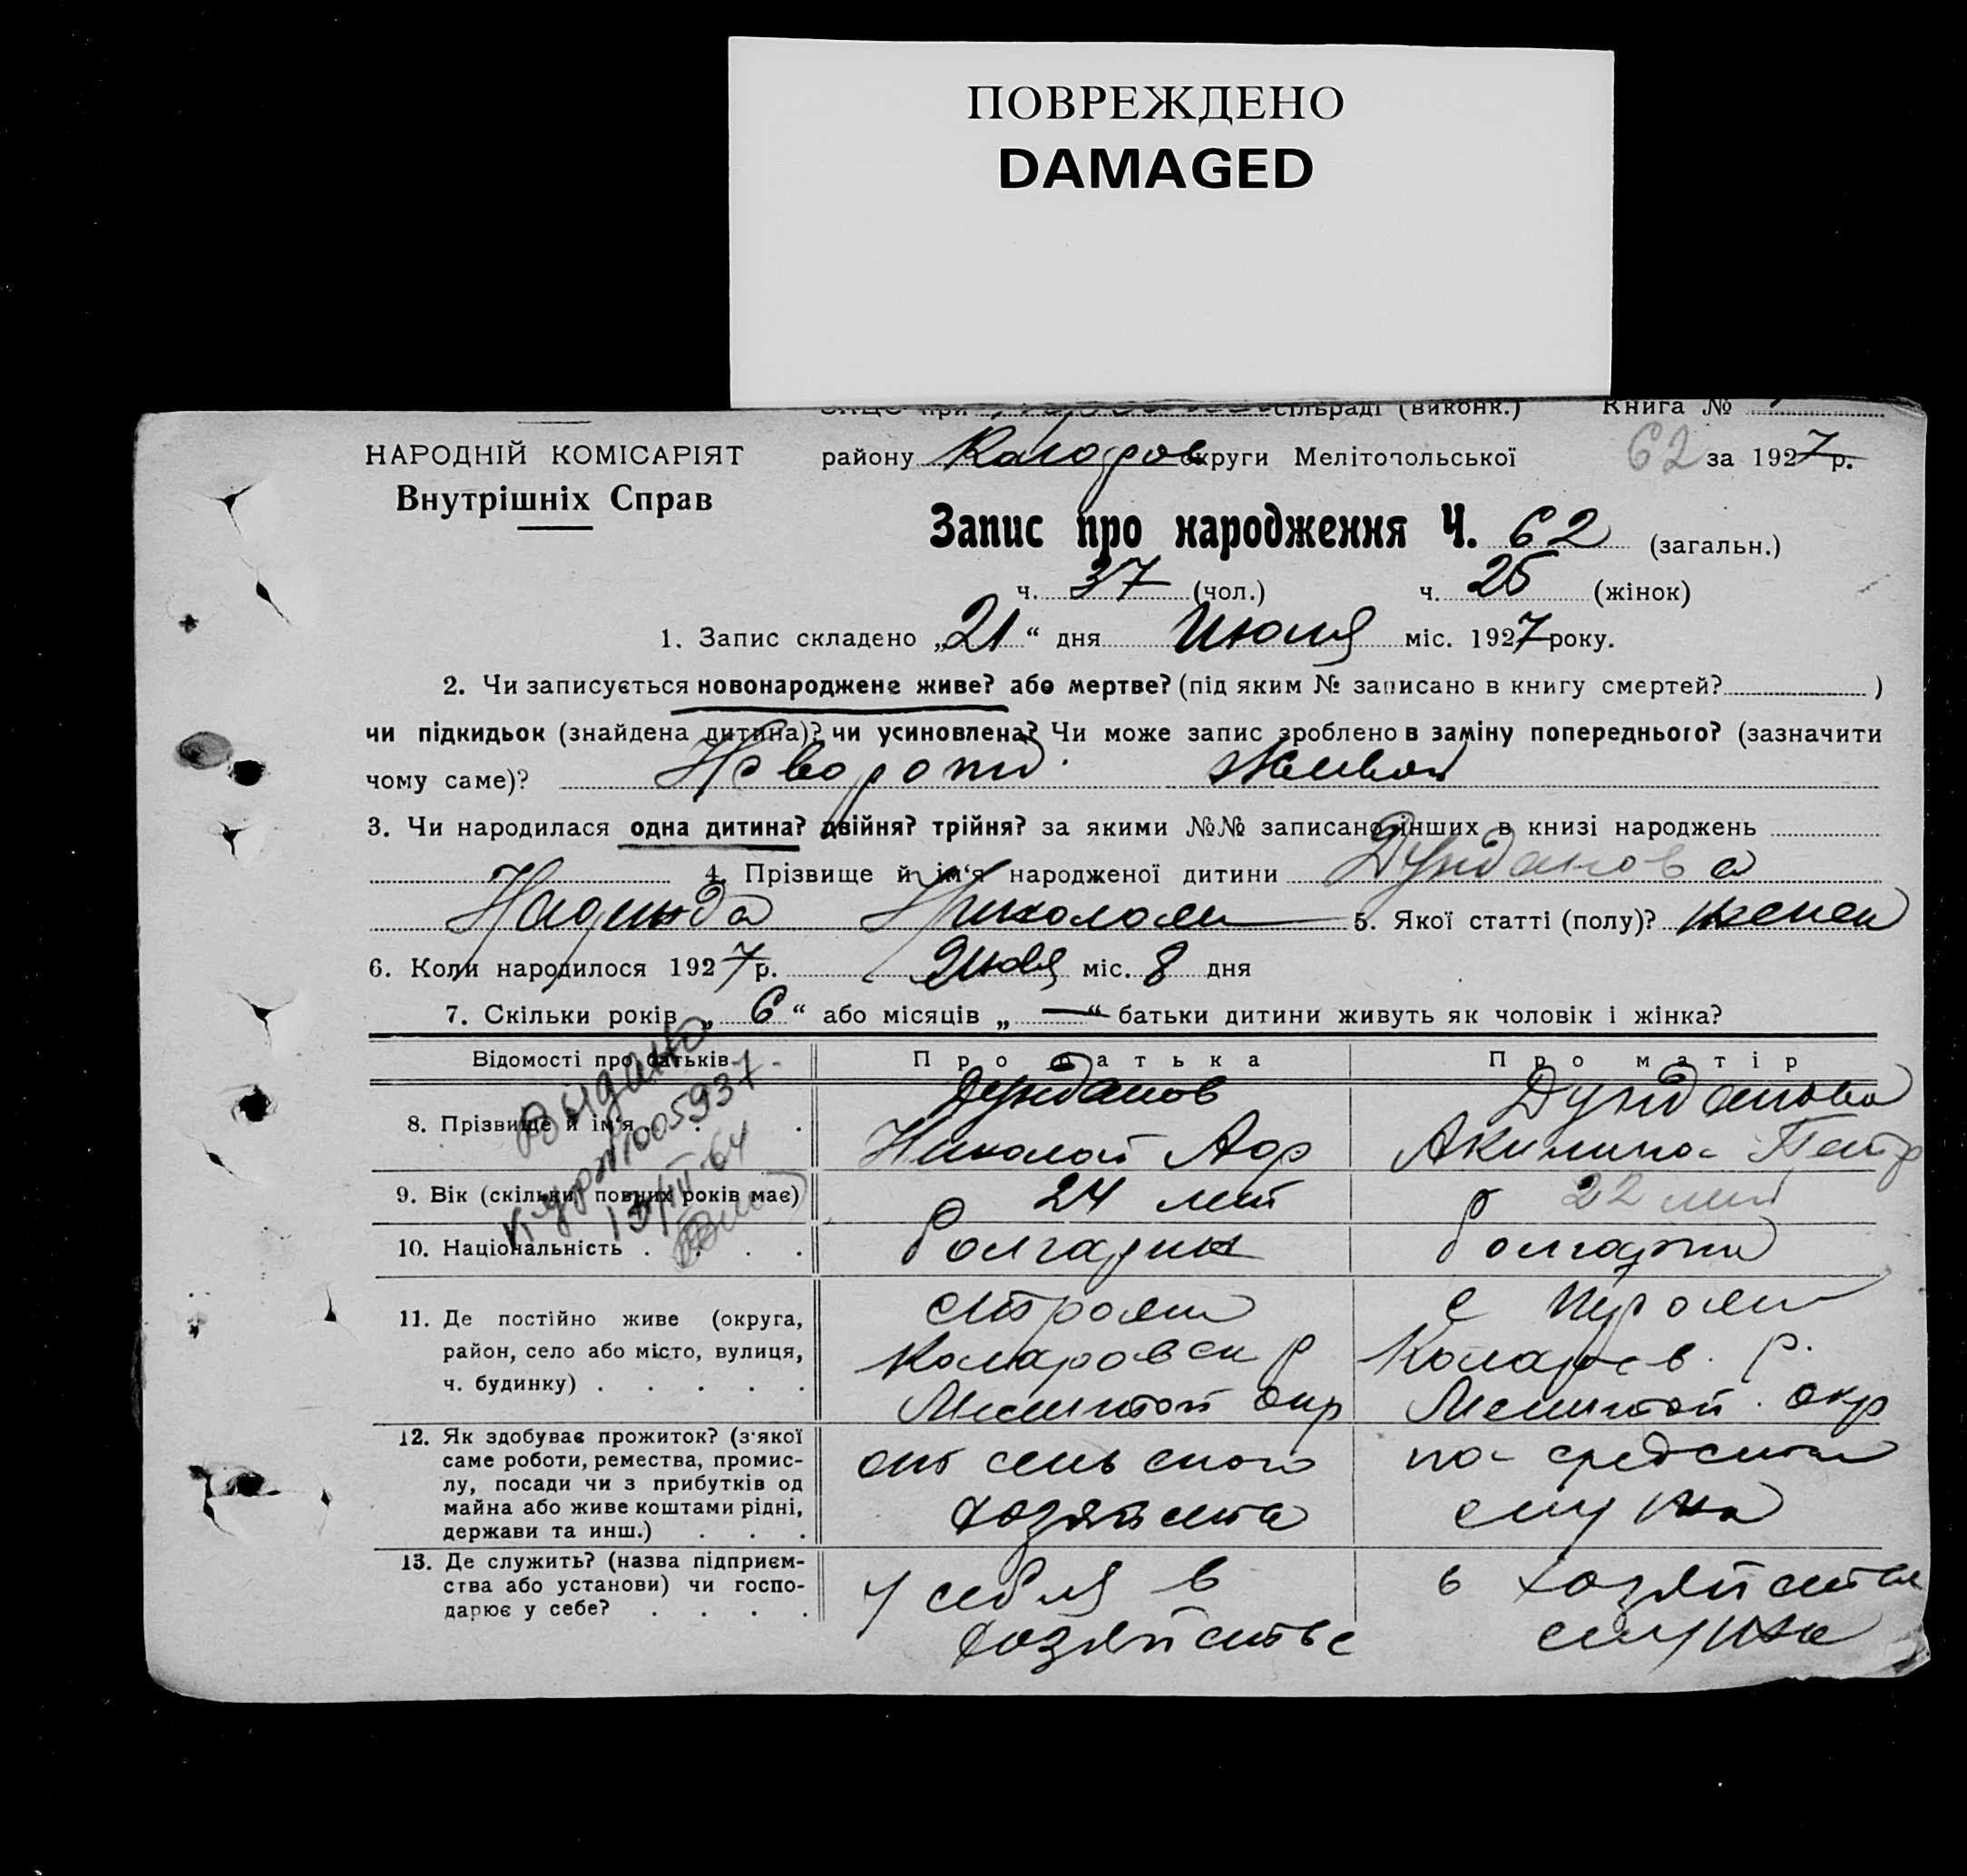 ПОВРЕЖДЕНО
DAMAGED
сільраді (виконк.) Книга №
НАРОДНІЙ КОМІСАРІЯТ
Внутрішніх Справ
району округи Мелітопольської 62 за 1927 р.
Запис про народження Ч. 62 (загальн.)
ч. 37 (чол.) ч. 25 (жінок)
1. Запис складено „21“ дня Июля міс. 1927 року.
2. Чи записується новонароджене живе? або мертве? (під яким № записано в книгу смертей? )
чи підкидьок (знайдена дитина)? чи усиновлена? Чи може запис зроблено в заміну попереднього? (зазначити
чому саме)? живой
3. Чи народилася одна дитина? двійня? трійня? за якими №№ записано інших в книзі народжень
4. Прізвище й ім‘я народженої дитини Дунданова
Надежда Николаев 5. Якої статті (полу)? женск
6. Коли народилося 1927 р. Июля міс. 8 дня
7. Скільки років „ 6 “ або місяців „ — “ батьки дитини живуть як чоловік і жінка?
Відомості про батьків Про батька Про матір
8. Прізвище й ім‘я Дунданов Дунданова
Николай Акилина Петр
9. Вік (скільки повних років має) 24 лет 22 лет
10. Національність болгарин болгарка
11. Де постійно живе (округа,
район, село або місто, вулиця,
ч. будинку)
Коларовск р Коларов. р.
Мелитоп окр Мелитоп. окр
12. Як здобуває прожиток? (з‘якої
саме роботи, ремества, промис-
лу, посади чи з прибутків од
майна або живе коштами рідні,
держави та инш.)
от сельского на средства
хозяйства мужа
13. Де служить? (назва підприєм-
ства або установи) чи госпо-
дарює у себе?
у себя в в хозяйстве
хозяйстве мужа
Выдано